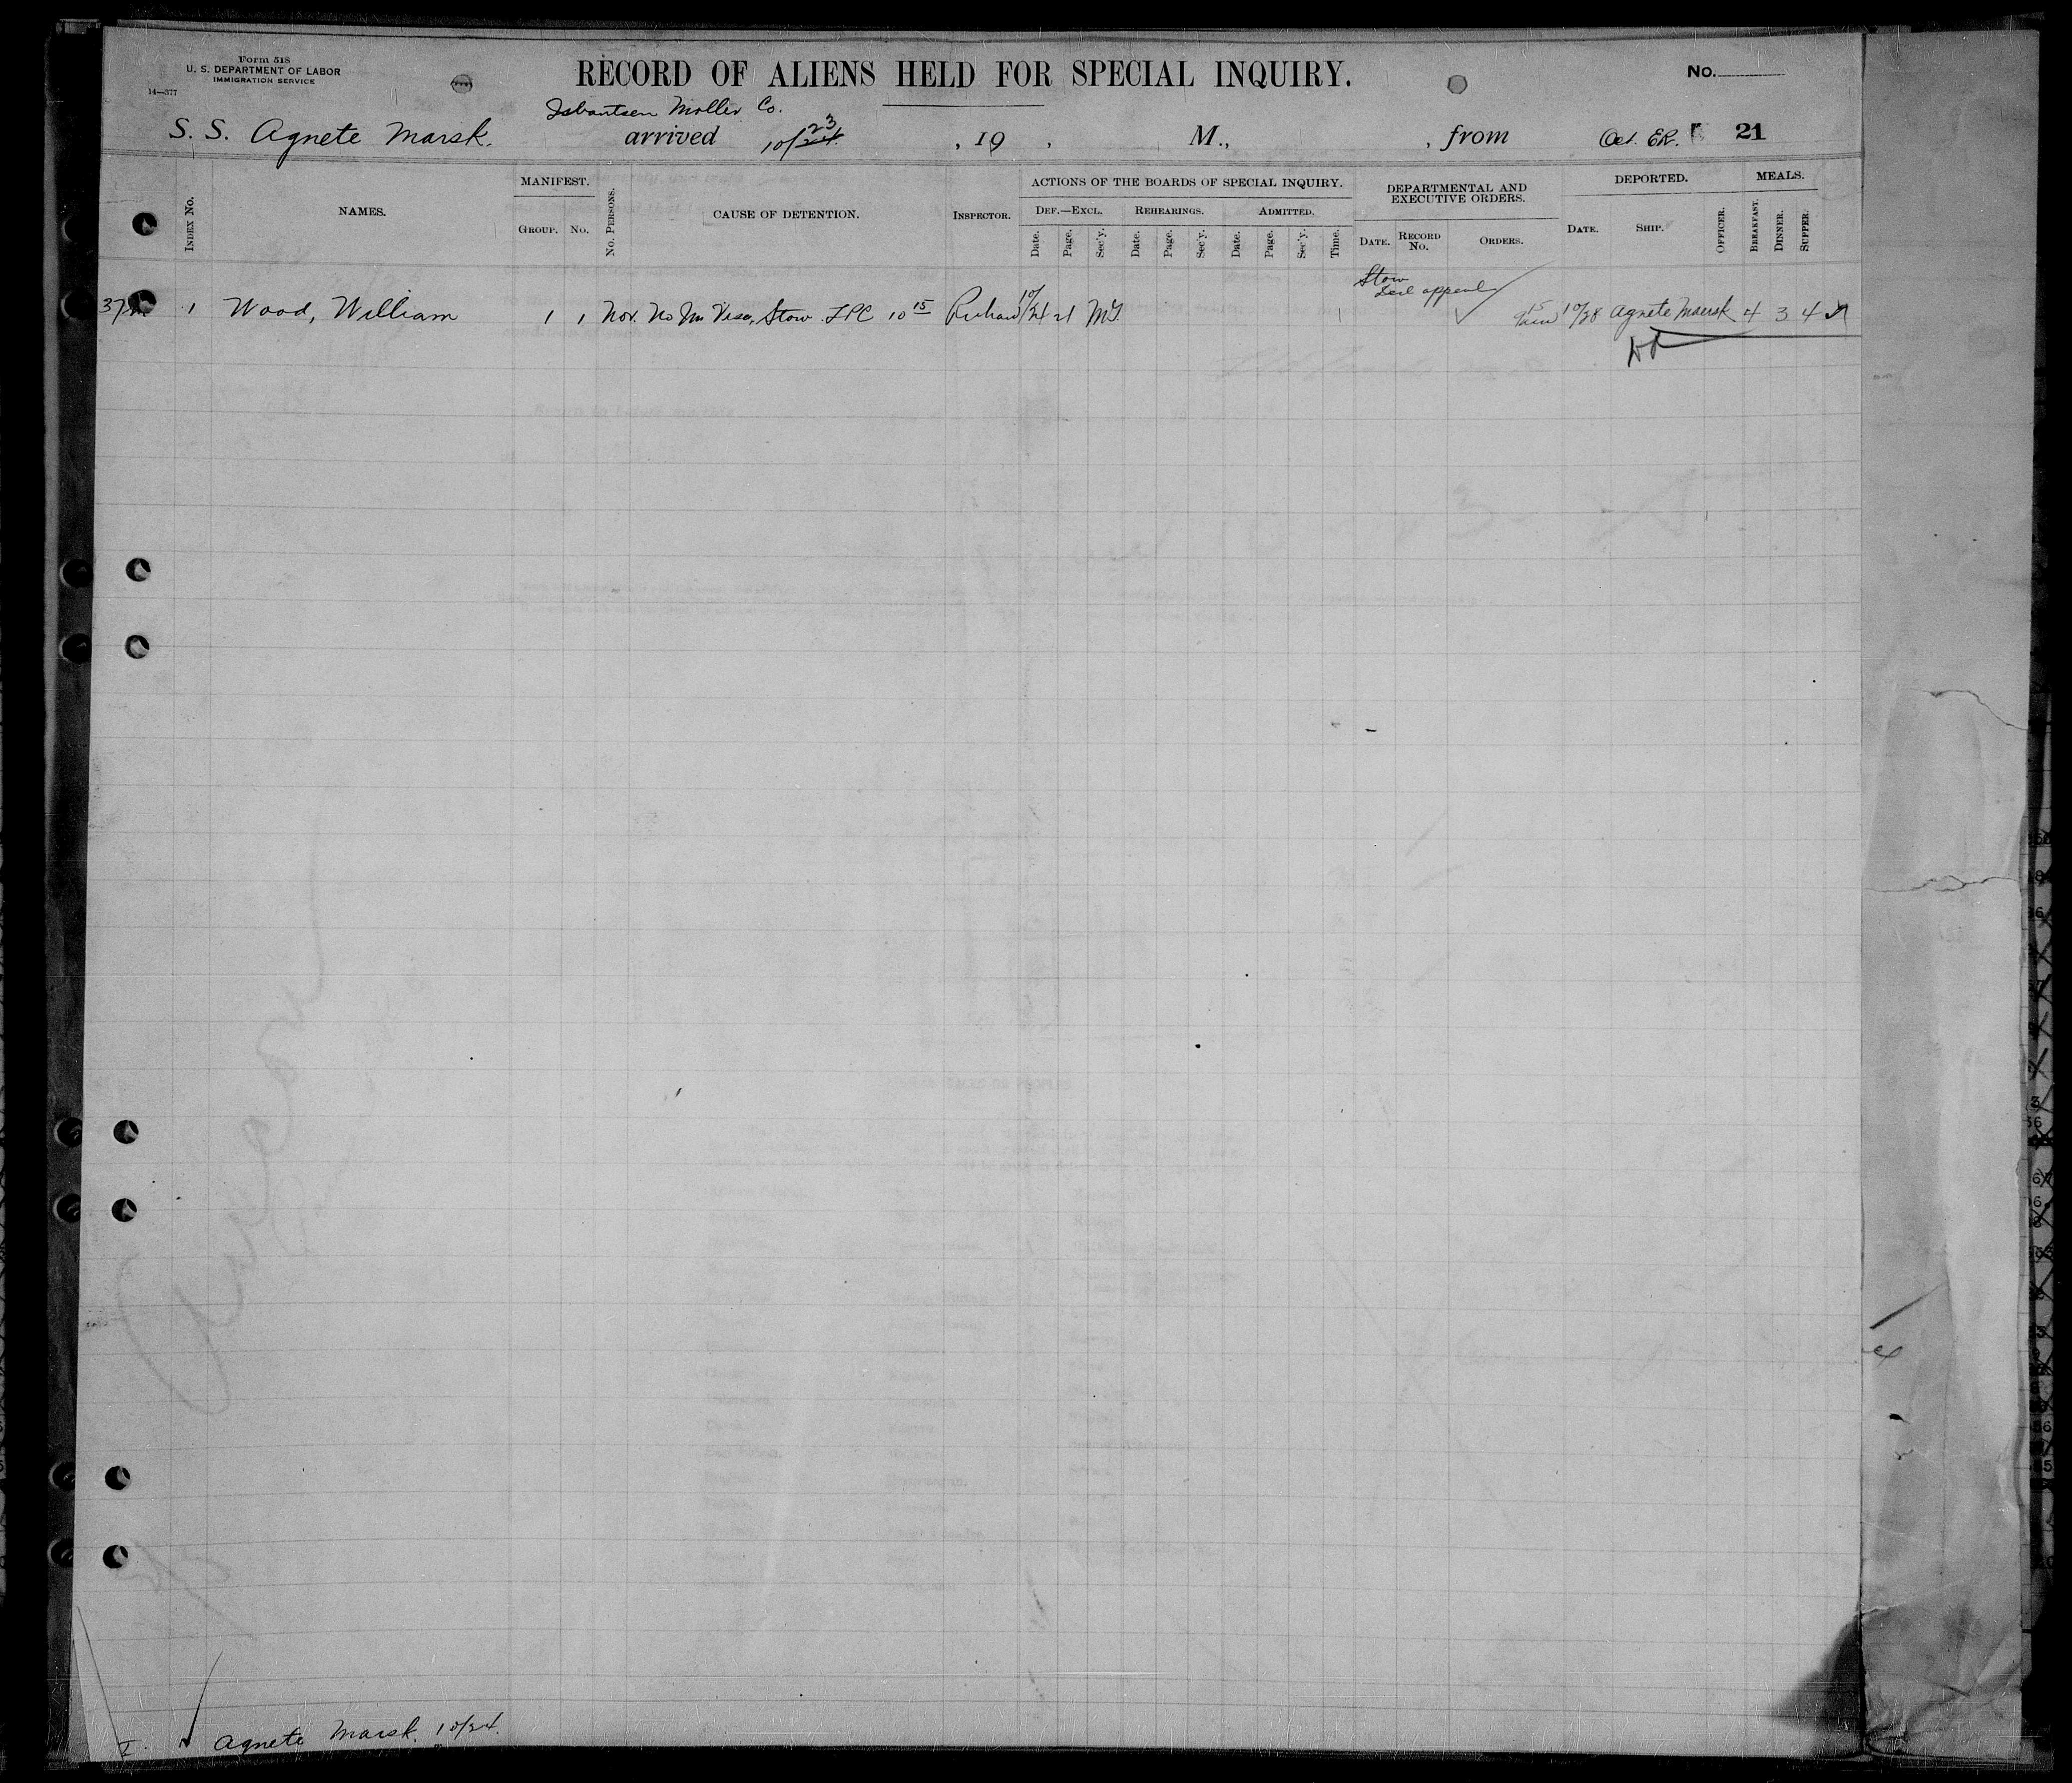 Form 518
U. S. DEPARTMENT OF LABOR
IMMIGRATION SERVICE
14—377
RECORD OF ALIENS HELD FOR SPECIAL INQUIRY.
No.
Isbrantsen Moller Co.
S. S. Agnete Marsk. arrived 10/23 24. , 19 , M., , from Oct. ER. 21
INDEX No.
NAMES.
MANIFEST.
GROUP. No.
No. PERSONS.
CAUSE OF DETENTION.
INSPECTOR.
ACTIONS OF THE BOARDS OF SPECIAL INQUIRY.
DEF.—EXCL. REHEARINGS. ADMITTED.
Date. Page. Sec'y. Date. Page. Sec'y. Date. Page. Sec'y. Time.
DEPARTMENTAL AND
EXECUTIVE ORDERS.
DATE. RECORD No. ORDERS.
DEPORTED.
DATE. SHIP. OFFICER.
MEALS.
BREAKFAST. DINNER. SUPPER.
Stow
appeal
1 Wood, William 1 1 No Visa, Stow LPC 10 15 10/24 21 10/28 Agnete Maersk 4 3 4
Agnete Marsk. 10/24.